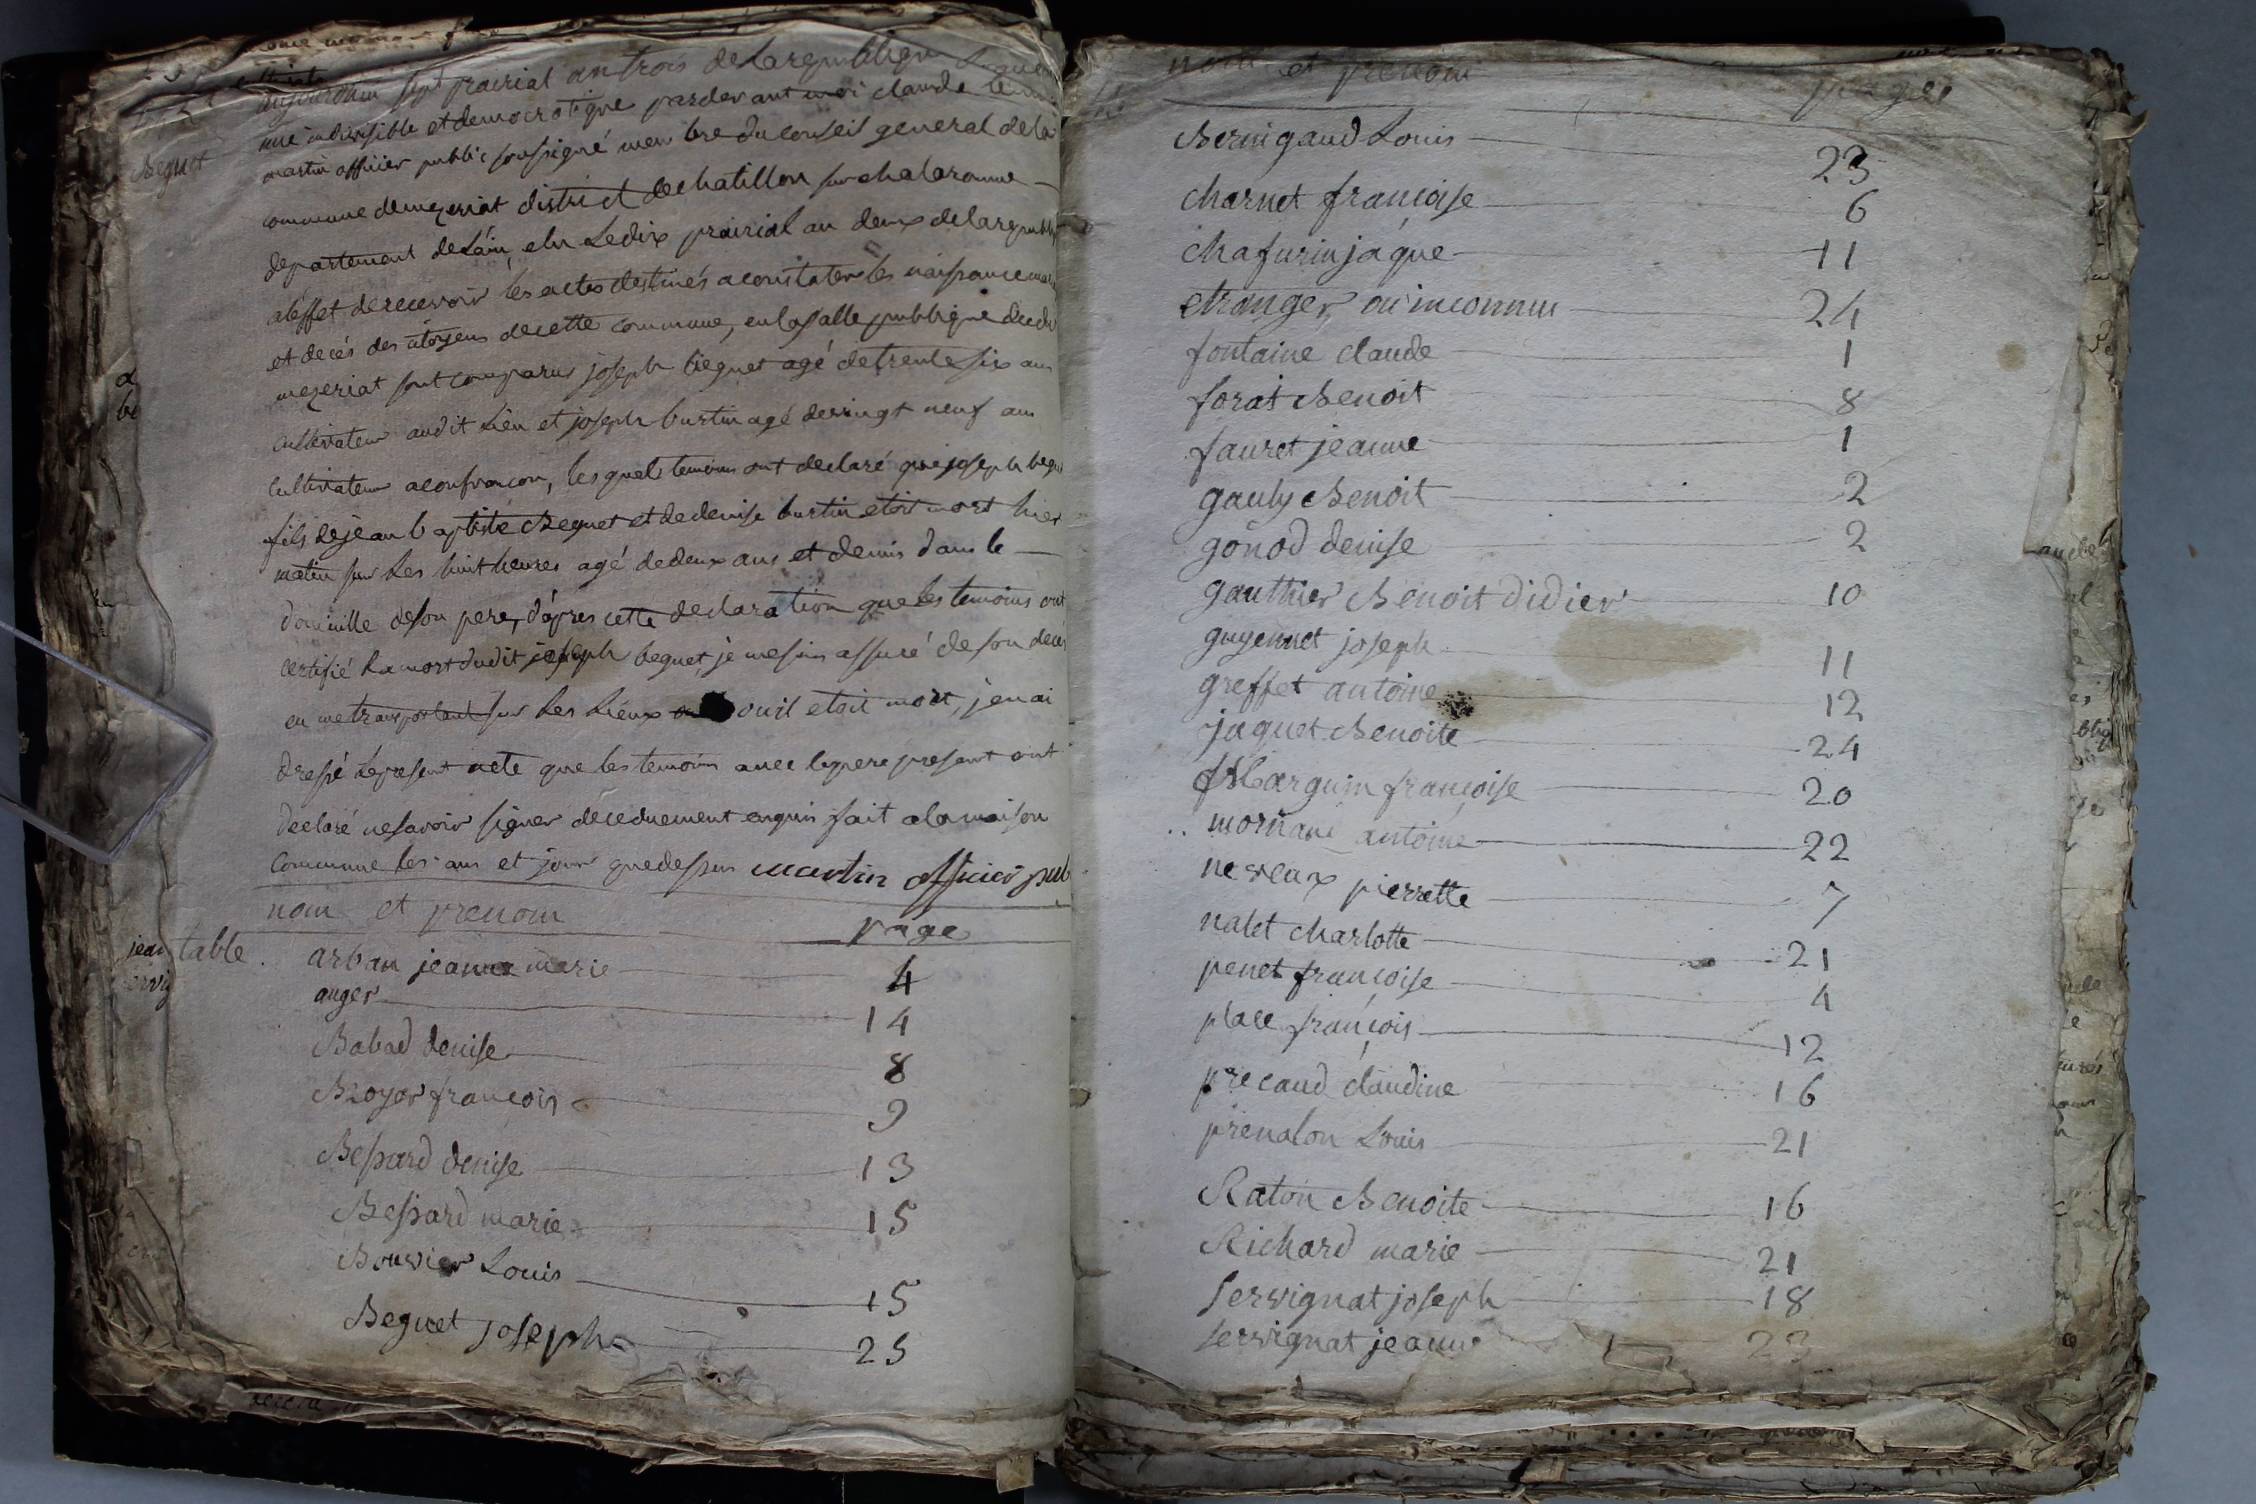 aujourdhui sept prairial an trois de la republique
une indivisible et democratique pardevant moi claude
Beguet
martin officier public soussigné membre du conseil general de la
commune de mezeriat district de chatillon sur chalaronne
departement de Lain, elu Le dix prairial an deux de la republi
aleffet de recevoir les actes destinés a constater les naissance
et decés des citoyens de cette commune, en la salle publique
mezeriat sont comparus joseph beguet agé de trente six ans
cultivateur audit Lieu et joseph burtin agé de vingt neuf ans
cultivateur a confrancon, lesquels temoins ont declaré que joseph begu
fils de jean baptiste Beguet et de denise burtin etoit mort hier
matin sur Les huit heures agé de deux ans et demis dans le
domicille de son pere, d'apres cette declaration que les temoins ont
certifié La mort dudit joseph beguet, je me suis assuré de son decés
en me transportant sur Les Lieux ou il etoit mort, jen ai
dressé Le present acte que les temoins avec le pere present ont
declaré ne savoir signer de ce duement enquis fait a la maison
commune les ans et jour que dessus martin officier pub
nom et prenom page
table arban jeanne marie 4
anger 14
Babad denise 8
Broyer francois 9
Bessard denise 13
Bessard marie 15
Bouvier Louis 15
Beguet joseph 25
nom et prenom pages
Bernigaud Louis 23
charnet françoise 6
chafurin jaque 11
etranger ou inconnu 24
fontaine claude 1
forat Benoit 8
fauret jeanne 1
gauly Benoit 2
gonod denise 2
gauthier Benoit didier 10
guyennet joseph 11
greffet antoine 12
jaquet Benoite 24
Marguin françoise 20
antoine 22
neveux pierrette 7
nalet charlotte 21
penet françoise 4
place françois 12
precaud claudine 16
prenalon Louis 21
Raton Benoite 16
Richard marie 21
servignat joseph 18
servignat jeanne 23